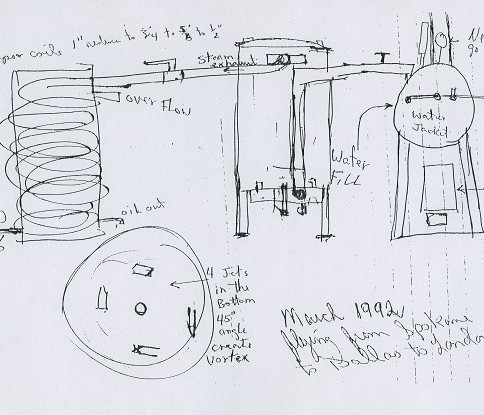 coils 1" reduce to 3/4 to 5/8 to 1/2"
steam
exhaust
OVER FLOW
oil out
Water
Fill
Water
Jacket
4 Jets
in the
Bottom
45°
angle
create
Vortex
March 1992
flying from
to Dallas to London